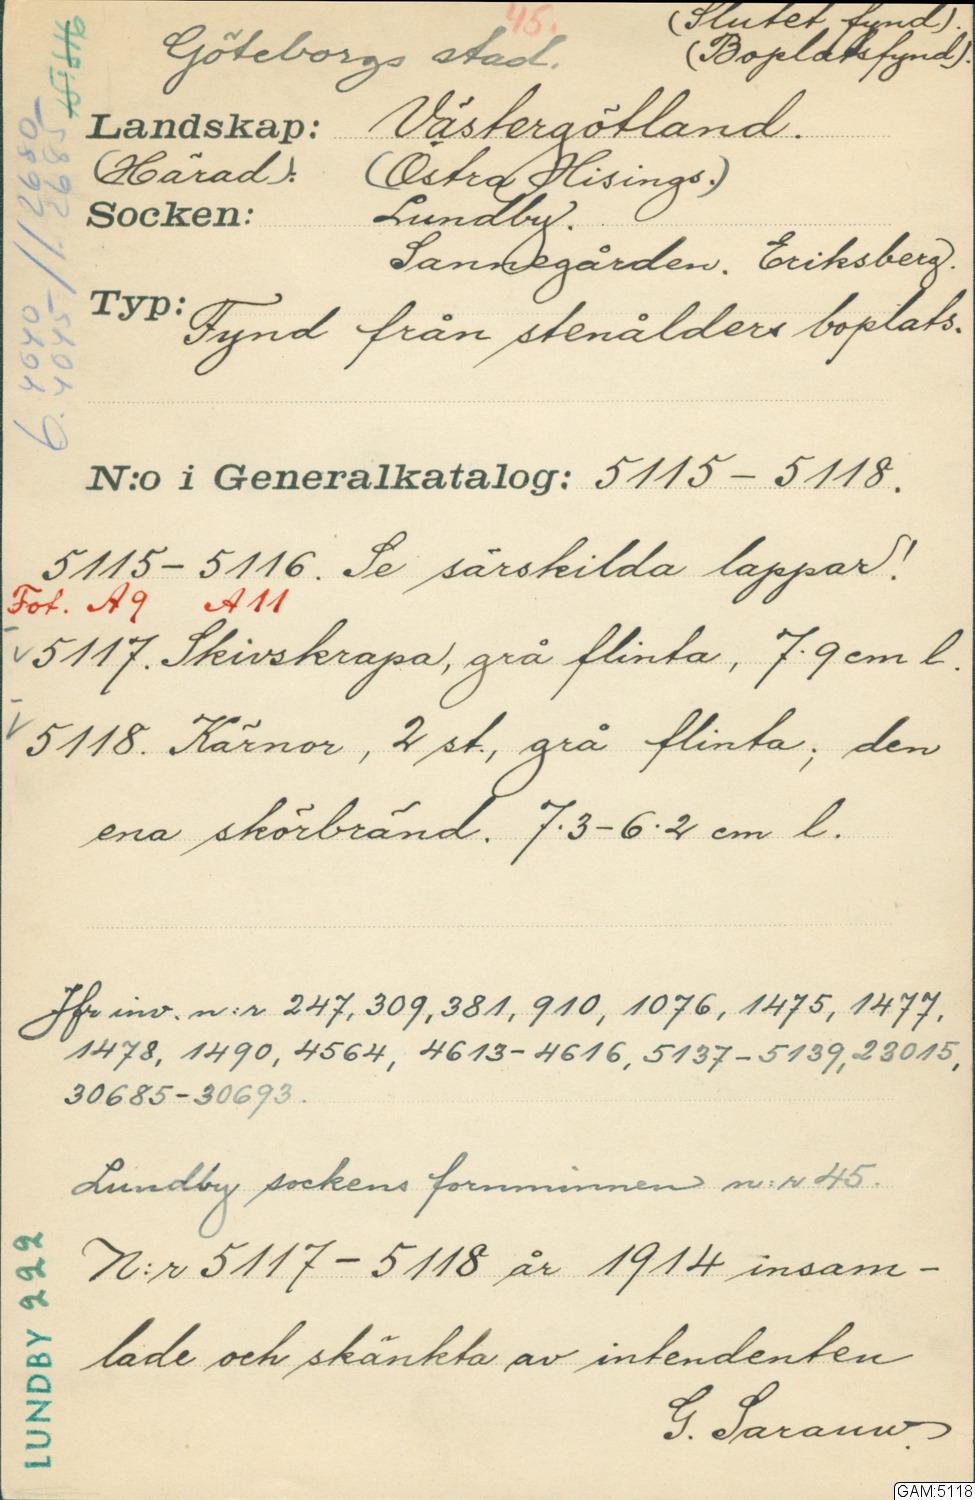 45.
(Slutet fynd).
Göteborgs stad.
(Boplatsfynd).
Landskap: Västergötland.
(Härad): (Östra Hisings.)
Socken: Lundby.
Sannegården. Eriksberg.
Typ: Fynd från stenålders boplats.
N:o i Generalkatalog: 5115-5118.
5115-5116. Se särskilda lappar!
Fot. A9 A11
V 5117. Skivskrapa, grå flinta, 7.9 cm l.
V 5118. Kärnor, 2 st., grå flinta; den
ena skörbränd. 7.3-6.2 cm l.
Jfr inv. n:r 247, 309, 381, 910, 1076, 1475, 1477,
1478, 1490, 4564, 4613-4616, 5137-5139, 23015,
30685-30693.
Lundby sockens fornminnen n:r 45.
N:r 5117-5118 år 1914 insam-
lade och skänkta av intendenten
G. Sarauw.
LUNDBY 222
GAM:5118